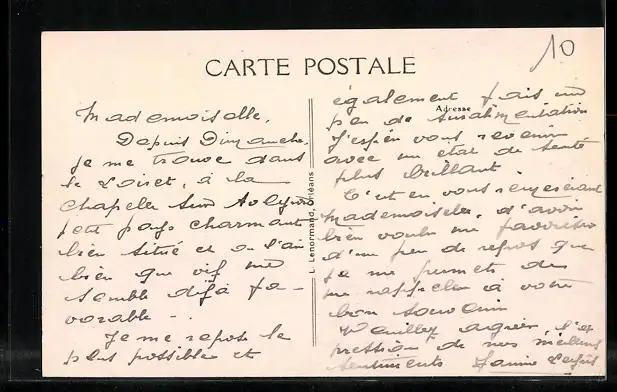 10
CARTE POSTALE
Adresse
L. Lenormand, Orléans
Mademoiselle,
Depuis Dimanche,
je me trouve dans
le Loiret, à la
Chapelle sur Aveyron
petit pays charmant
bien situé et où l'air
bien que vif me
semble déjà fa-
vorable -.
Je me repose le
plus possible et
également fais un
peu de suralimentation
J'espère vous revenir
avec un état de santé
plus brillant.
C'est en vous remerciant
Mademoiselle, d'avoir
bien voulu me favoriser
d'un peu de repos que
je me permets de
me rappeler à votre
bon souvenir
Veuillez agréer, l'ex
pression de mes meilleurs
sentiments